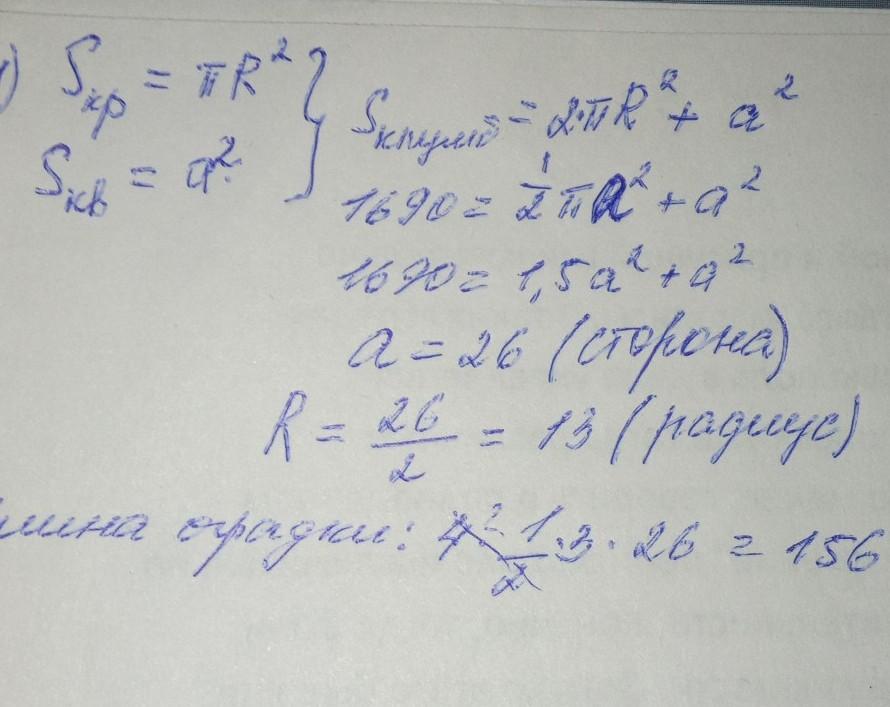 1) Sкр = πR²
Sкв = a²
Sклумб = 2·πR² + a²
1690 = 1/2 πa² + a²
1690 = 1,5a² + a²
a = 26 (сторона)
R = 26/2 = 13 (радиус)
оградки: 4² · 1/2 · 3 · 26 = 156